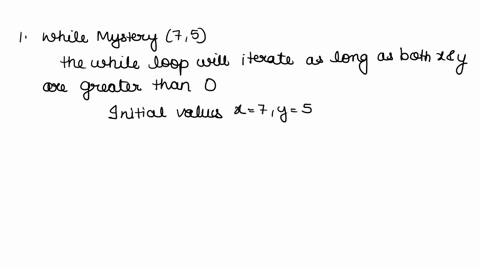 1. While Mystery (7,5)
the while loop will iterate as long as both x&y
are greater than 0
Initial values x=7, y=5